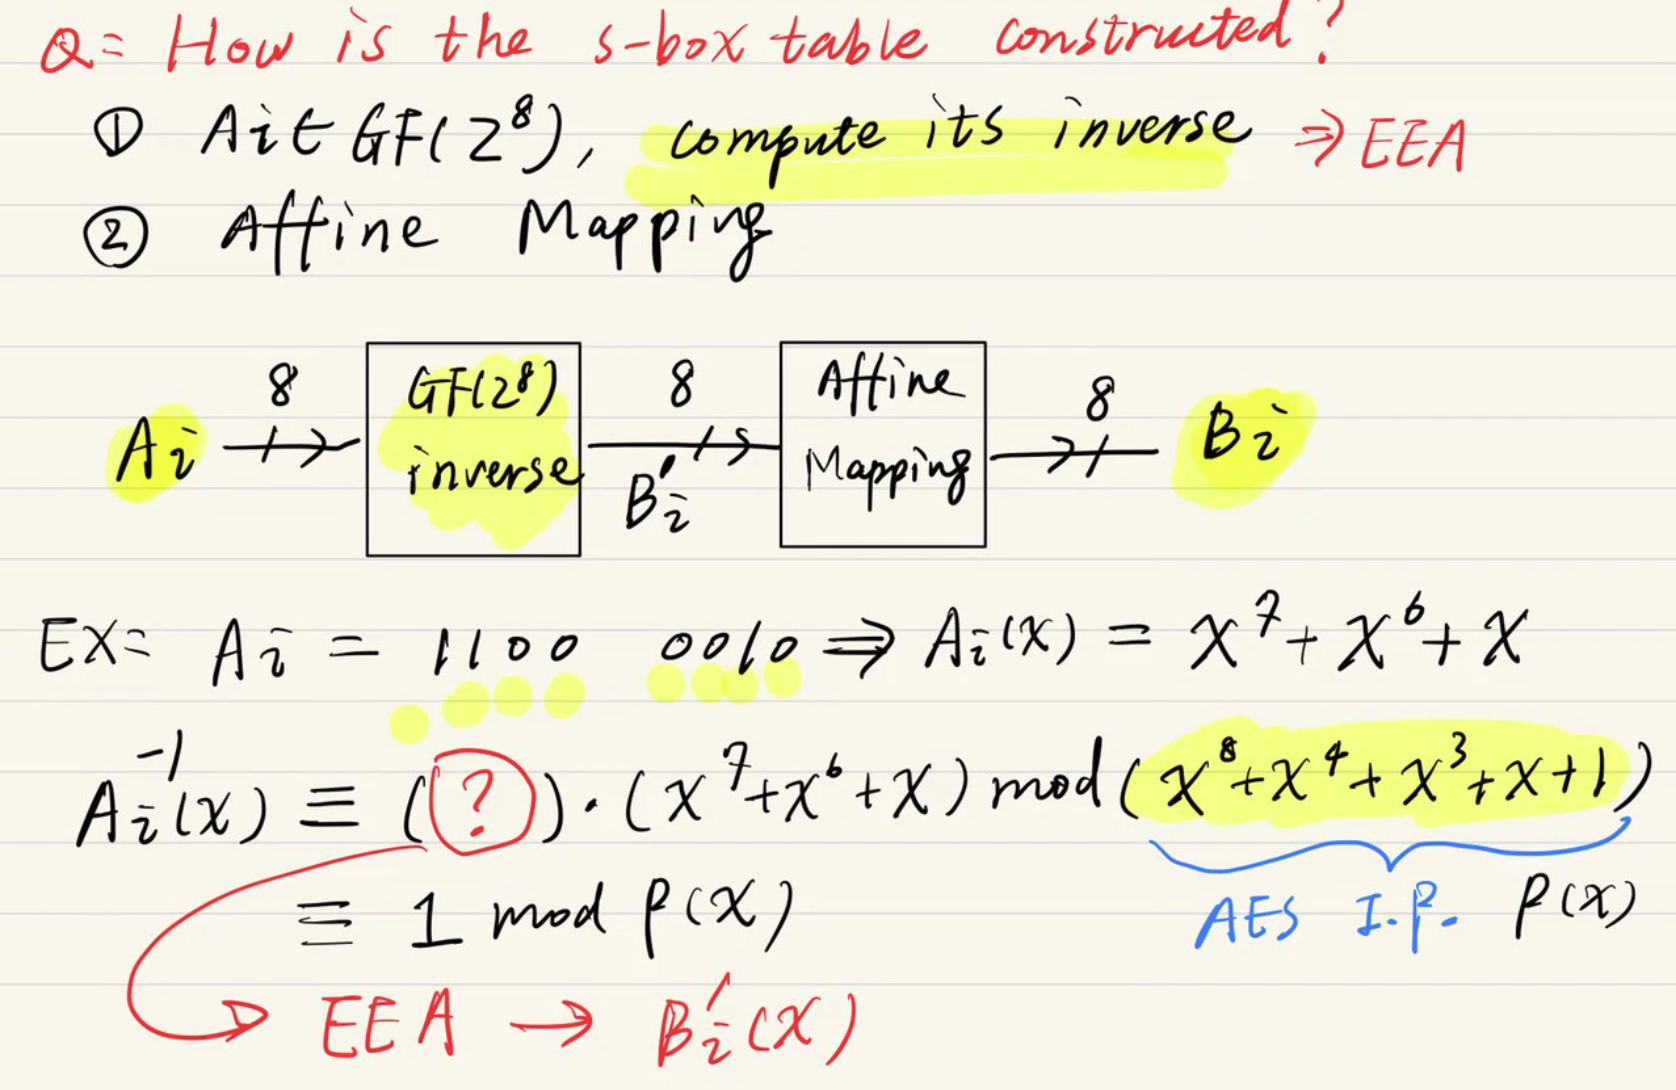 Q= How is the s-box table constructed?
① Ai ∈ GF(2⁸), compute its inverse ⇒ EEA
② Affine Mapping
Ai 8 GF(2⁸) inverse 8 Bi′ Affine Mapping 8 Bi
EX= Ai = 1100 0010 ⇒ Ai(x) = x⁷+x⁶+x
Ai⁻¹(x) ≡ (?)·(x⁷+x⁶+x) mod (x⁸+x⁴+x³+x+1)
≡ 1 mod P(x)
AES I.P. P(x)
EEA → Bi′(x)